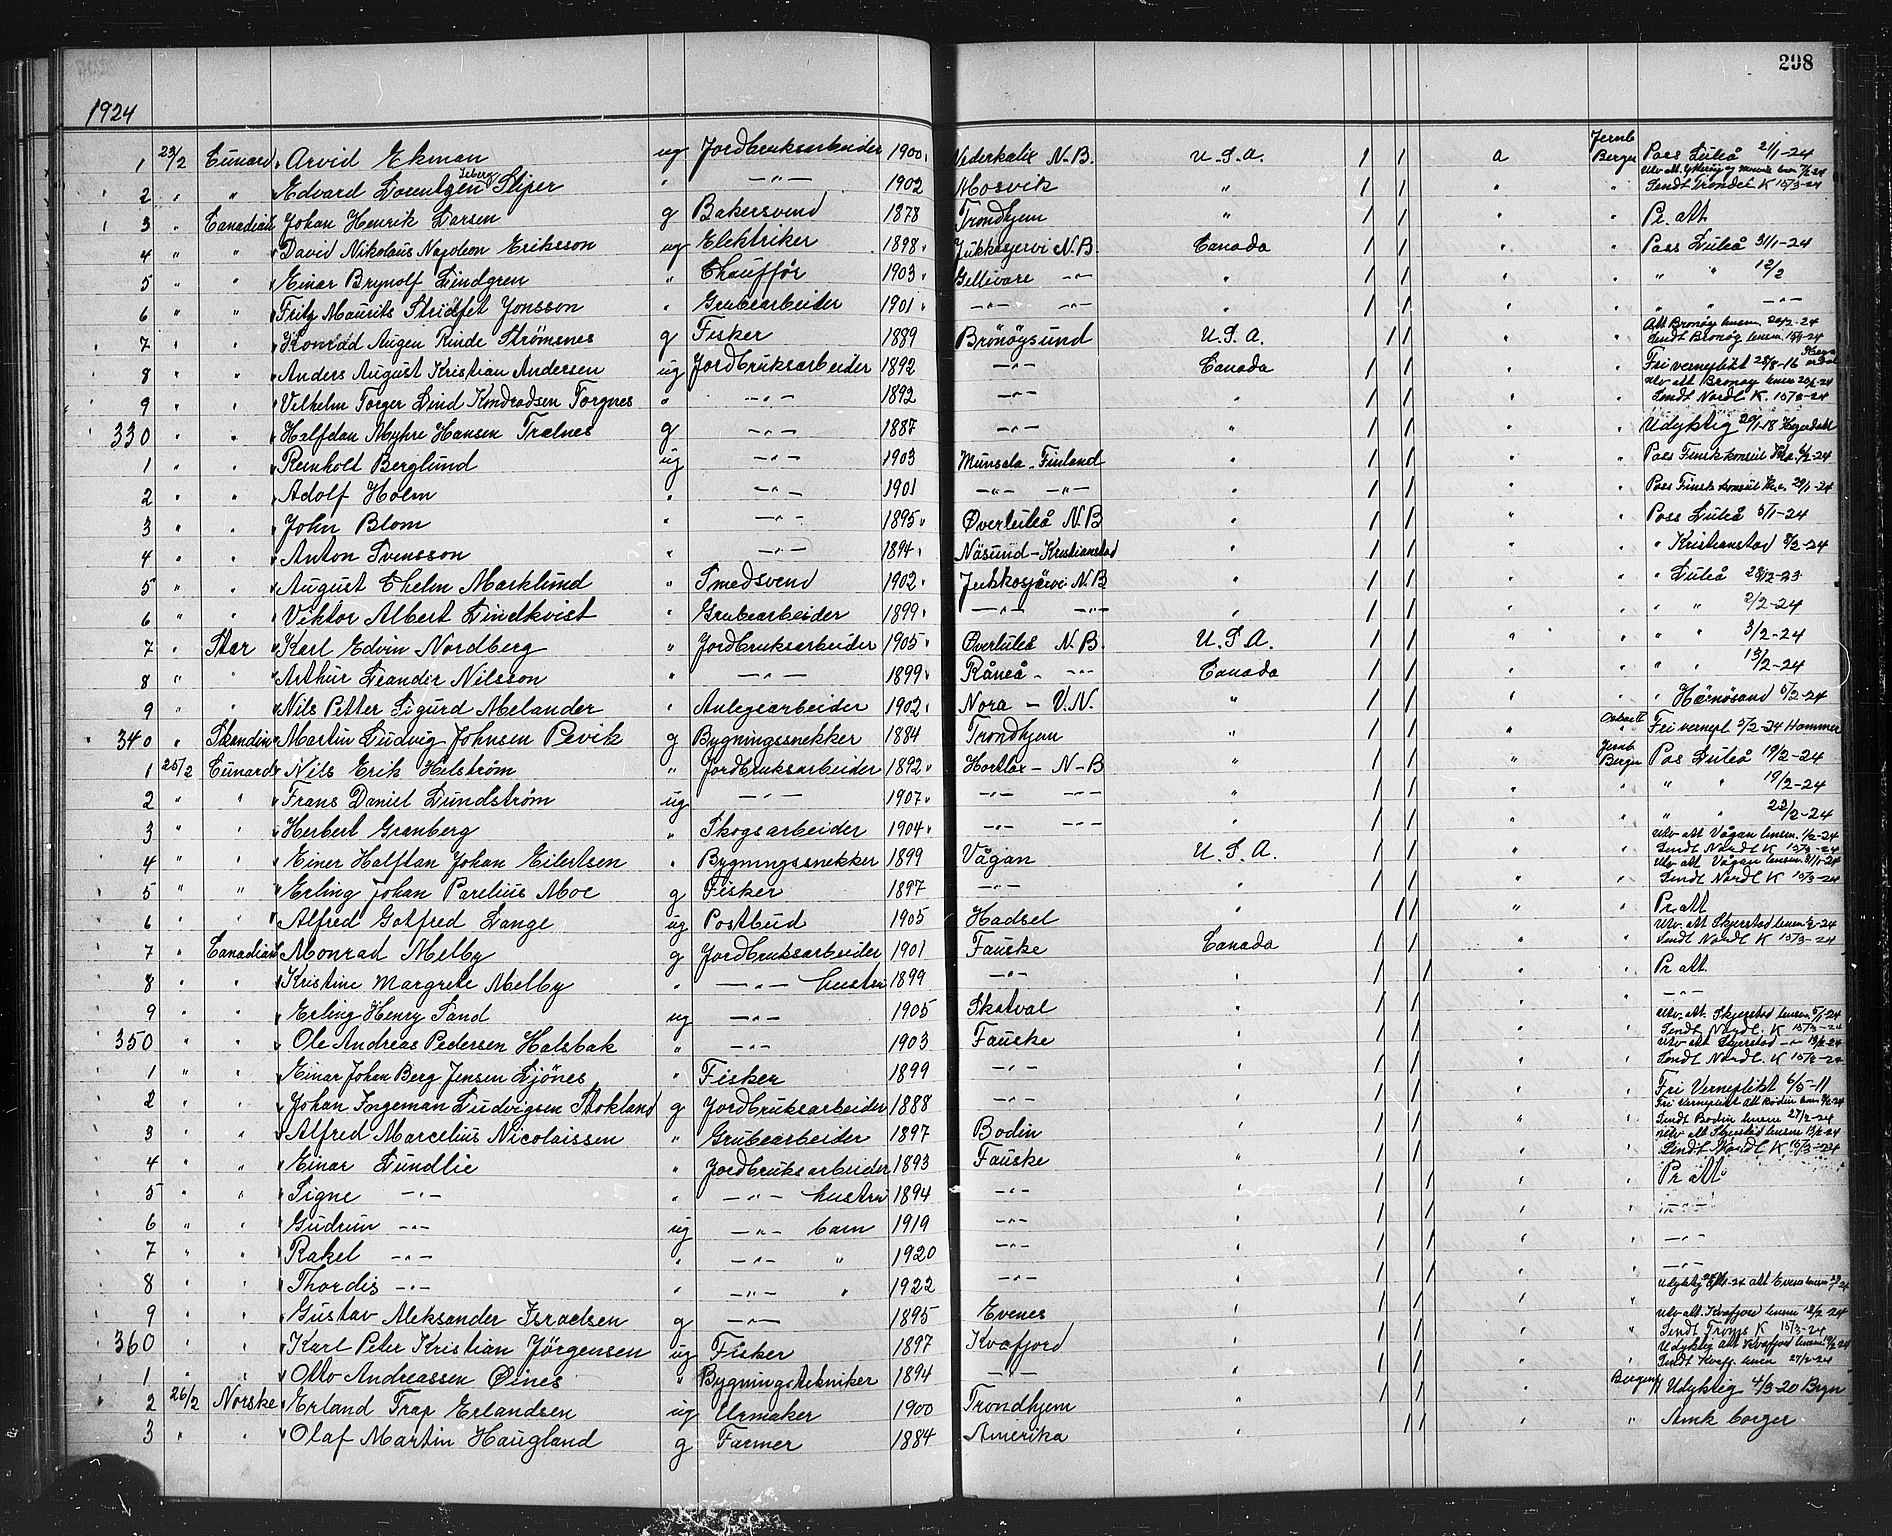 298
1924
1 23/2 Cunard " Arvid Ekman ug Jordbruksarbeider 1900 Nederkalix N.B. U.S.A. 1 1 a Jernb Bergen Pass Luleå 21/1-24
2 " " " Edvard Lorentzen Seberg Sliper " —"— 1902 Mosvik " 1 1 " " Utv. att. Ytterøy og Mosvik lensm 7/2-24 Sendt Trondel K 15/3-24
3 " Canadian Johan Henrik Larsen g Bakersvend 1878 Trondhjem " 1 1 " " Pr. att
4 " " " David Nikolaus Napoleon Eriksson ug Elektriker 1898 Jukkasjervi N.B. Canada 1 1 " " Pass Luleå 31/1-24
5 " " " Einar Brynolf Lindgren " Chaufför 1903 Gellivare —"— " 1 1 " " " " 12/2
6 " " " Fritz Maurits Stridfet Jonsson " Grubearbeider 1901 —"— —"— " 1 1 " " " " —"—
7 " " " Konrad Augen Rinde Strømsnes g Fisker 1889 Brönöysund U.S.A. 1 1 " " Att Bronöy lensm. 20/2-24 Sendt Brönöy lensm 15/3-24
8 " " " Anders August Kristian Andersen ug Jordbruksarbeider 1892 —"— Canada 1 1 " " Fri verneplikt 28/8-16
9 " " " Vilhelm Torger Lind Kondradsen Torgnes " —"— 1892 —"— " 1 1 " " Utv att Brønøy lensm 20/2-24 Sendt Nordl K. 15/3-24
330 " " " Halfdan Myhre Hansen Trælnes g —"— 1887 —"— " 1 1 " " Udyktig 29/1-18
1 " " " Reinholt Berglund ug —"— 1903 Munsala - Finland " 1 1 " " Pass Finsk konsul 6/2-24
2 " " " Adolf Holm " —"— 1901 —"— —"— " 1 1 " " Pass Finsk konsul 29/1-24
3 " " " John Blom " —"— 1895 Øverluleå N.B " 1 1 " " Pass Luleå 5/1-24
4 " " " Anton Svensson " —"— 1894 Näsund - Kristianstad " 1 1 " " " Kristianstad 8/2-24
5 " " " August Thelm Marklund " Smedsvend 1902 Jukkasjärvi N.B " 1 1 " " " Luleå 28/12-23
6 " " " Viktor Albert Lindkvist " Grubearbeider 1899 —"— —"— " 1 1 " " " " 2/2-24
7 " Star " Karl Edvin Nordberg " Jordbruksarbeider 1905 Øverluleå N.B. U.S.A. 1 1 " " " " 3/2-24
8 " " " Arthur Leander Nilsson " —"— 1899 Råneå - —"— Canada 1 1 " " " " 13/2-24
9 " " " Nils Petter Sigurd Melander " Anlegsarbeider 1902 Nora - V.N. " 1 1 " " " Härnösand 5/2-24
340 " Skandin " Martin Ludvig Johnsen Pevik g Bygningssnekker 1884 Trondhjem " 1 1 " Fri vernepl 5/2-24 Hammer
1 25/2 Cunard " Nils Erik Helström " Jordbruksarbeider 1892 Hortlax - N-B " 1 1 " Jernb Bergen Pas Luleå 19/2-24
2 " " " Frans Daniel Lundström ug —"— 1907 —"— —"— " 1 1 " " " " 19/2-24
3 " " " Herbert Granberg " Skogsarbeider 1904 —"— —"— " 1 1 " " " " 22/2-24
4 " " " Einer Halftan Johan Eilertsen " Bygningssnekker 1899 Vågan U.S.A. 1 1 " " Utv att Vågan lensm. 1/2-24 Sendt Nordl K 15/3-24
5 " " " Erling Johan Parelius Moe g Fisker 1897 —"— " 1 1 " " Utv att Vågan lensm. 31/1-24 Sendt Nordl K 15/3-24
6 " " " Alfred Gotfred Lange ug Postbud 1905 Hadsel " 1 1 " " Pr. att
7 " Canadian Monrad Melby g Jordbruksarbeider 1901 Fauske Canada 1 1 " " Utv. att Skjerstad lensm Sendt Nordl K 15/3-24
8 " " " Kristine Margrete Melby " —"— hustru 1899 —"— " 1 1 " " Pr att
9 " " " Erling Henry Sand ug —"— 1905 Skatval " 1 1 " " —"—
350 " " " Ole Andreas Pedersen Halsbak " —"— 1903 Fauske " 1 1 " " Utv. att. Skjerstad lensm 5/1-24 Sendt Nordl. K 15/3-24
1 " " " Einar Johan Berg Jensen Ljönes " Fisker 1899 —"— " 1 1 " " Utv att Skjerstad —"— 13/2-24 Sendt Nordl. K 15/3-24
2 " " " Johan Ingeman Ludvigsen Stokland g Jordbruksarbeider 1888 —"— " 1 1 " " Fri Verneplikt 6/5-11
3 " " " Alfred Marcelius Nicolaissen " Grubearbeider 1897 Bodin " 1 1 " " Fri verneplikt att Bodin lensm Sendt Bodin lensm 27/2-24
4 " " " Einar Lundlie " Jordbruksarbeider 1893 Fauske " 1 1 " " Utv att Skjerstad lensm 13/2-24 Sendt Nordl K. 15/3-24
5 " " " Signe —"— " —"— hustru 1894 —"— " 1 1 " " Pr att
6 " " " Gudrun —"— ug —"— barn 1919 —"— " 1 1 " " —"—
7 " " " Rakel —"— " —"— " 1920 —"— " 1 1 " " —"—
8 " " " Thordis —"— " —"— " 1922 —"— " 1 1 " " —"—
9 " " " Gustav Aleksander Israelsen g —"— 1895 Evenes " 1 1 " " Udyktig att Evenes lensm
360 " " " Karl Peter Kristian Jörgensen ug Fisker 1897 Kvæfjord " 1 1 " " Utv. att Kvæfjord lensm 12/2-24 Sendt Troms K 15/3-24
1 " " " Otto Andreassen Øines " Bygningstekniker 1894 —"— " 1 1 " " Udyktig att Kvæfjord lensm 19/2-24 Sendt Kvæfj. lensm 27/2-24
2 26/2 Norske " Erland Trap Erlandsen ug Urmaker 1900 Trondhjem " 1 1 " Bergensf Udyktig 4/3-20 Bergn
3 " " " Olaf Martin Haugland g Farmer 1884 Amerika " 1 1 " " Amk borger